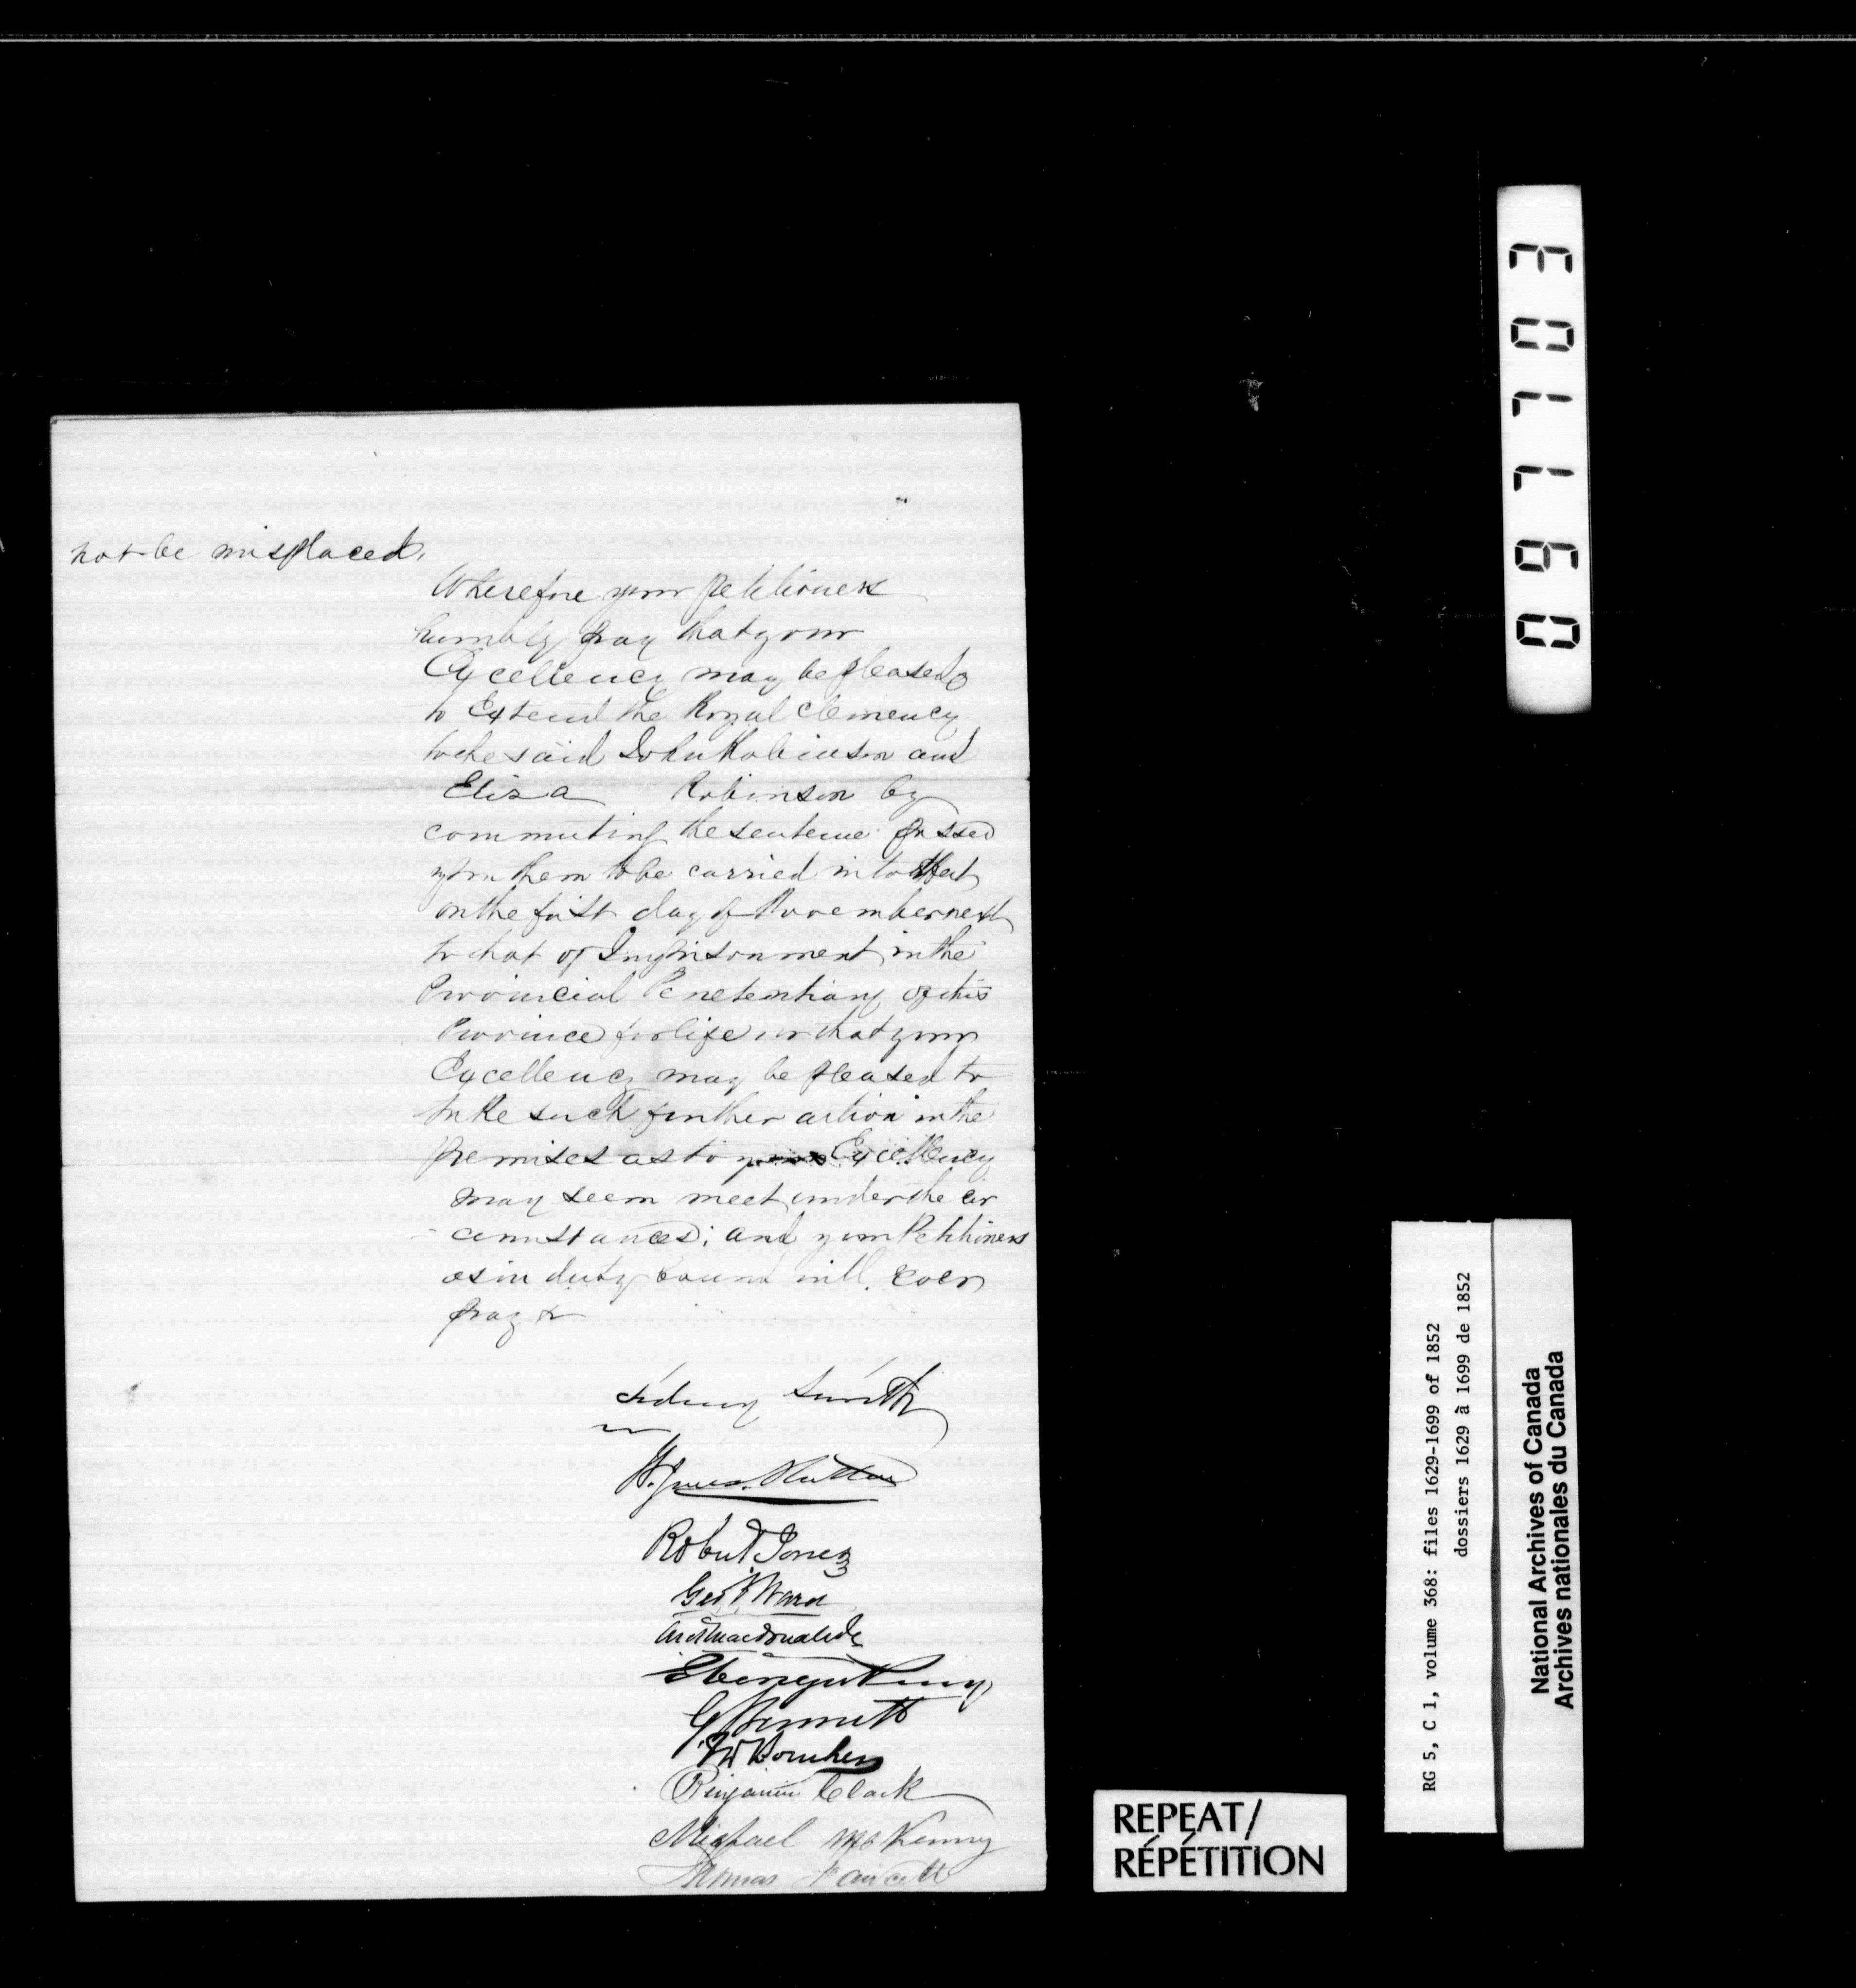 not be misplaced.
Wherefore your petitioners
humbly pray that your
Excellency may be pleased
to Extend the Royal clemency
to the said John Robinson and
Eliza Robinson by
commuting the sentence passed
upon them to be carried into effect
on the first day of November next
to that of Imprisonment in the
Provincial Penetentiary of this
Province for life, or that your
Excellency may be pleased to
take such further action in the
premises as to your Excellency
may seem meet under the cir
- cumstances; and your Petitioners
as in duty bound will ever
pray &
Sidney Smith
Robert Jones
Geo. Ward
G Bennett
Benjamin Clark
Michael McKenny
Thomas Fawcett
REPEAT/
RÉPÉTITION
RG 5, C 1, volume 368: files 1629-1699 of 1852
dossiers 1629 à 1699 de 1852
National Archives of Canada
Archives nationales du Canada